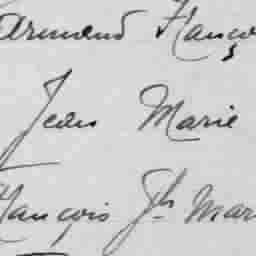 armand Franço
Jean Marie
François Jh Mari